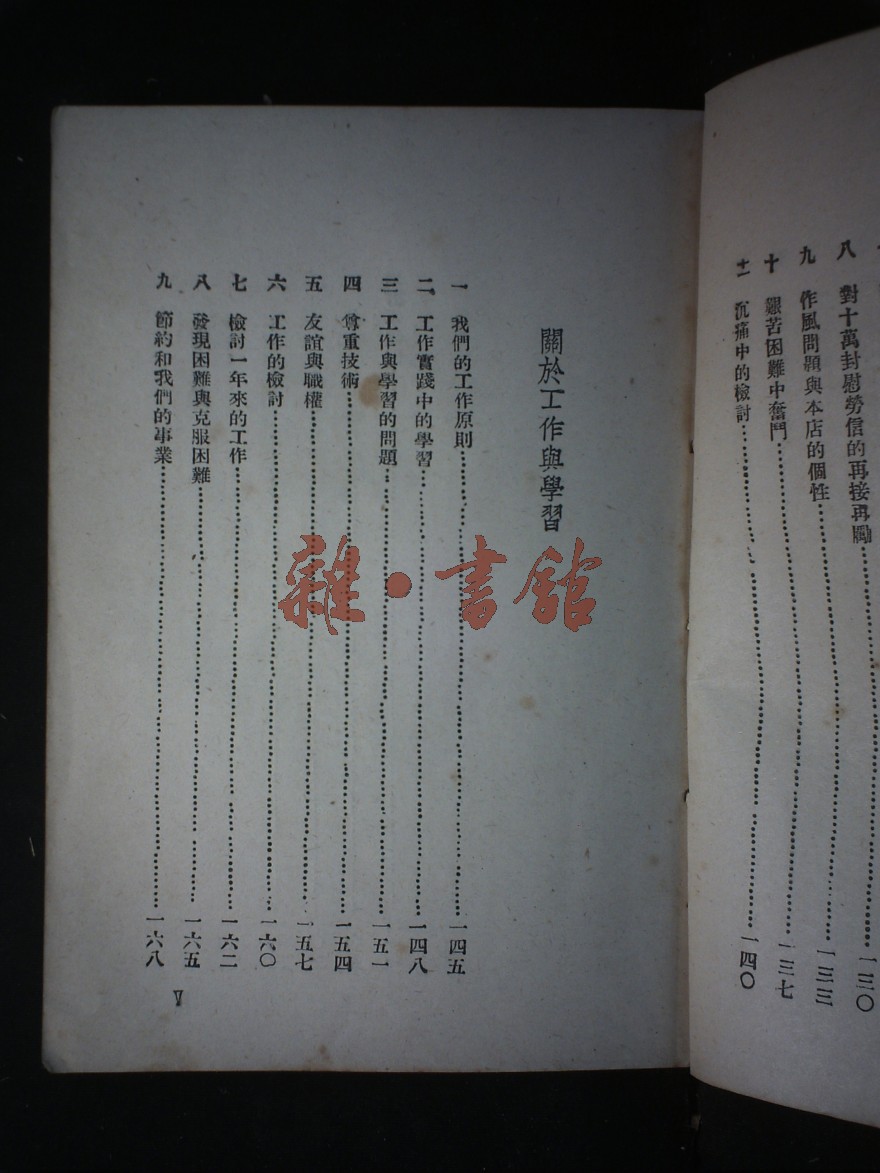 八 對十萬封慰勞信的再接再勵……一三〇
九 作風問題與本店的個性……一三三
十 艱苦困難中奮鬥……一三七
十一 沉痛中的檢討……一四〇
關於工作與學習
一 我們的工作原則……一四五
二 工作實踐中的學習……一四八
三 工作與學習的問題……一五一
四 尊重技術……一五四
五 友誼與職權……一五七
六 工作的檢討……一六〇
七 檢討一年來的工作……一六二
八 發現困難與克服困難……一六五
九 節約和我們的事業……一六八
V
雜·書館